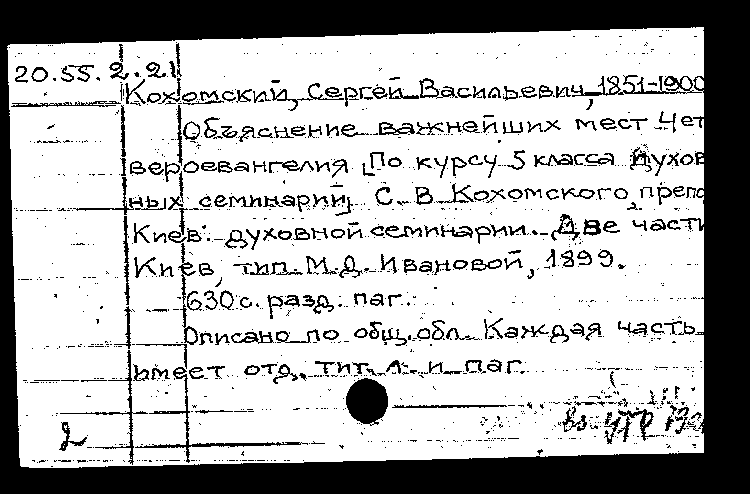 20.55.2.21
Кохомский, Сергей Васильевич, 1851-1900
Объяснение важнейших мест Чет
вероевангелия [По курсу 5 класса духов
ных семинарий] С. В Кохомского, препо
Киев. духовной семинарии. Две части
Киев, тип. М.Д. Ивановой, 1899.
630 с. разд. паг.
Описано по общ. обл. Каждая часть
имеет отд. тит. л. и паг.
2